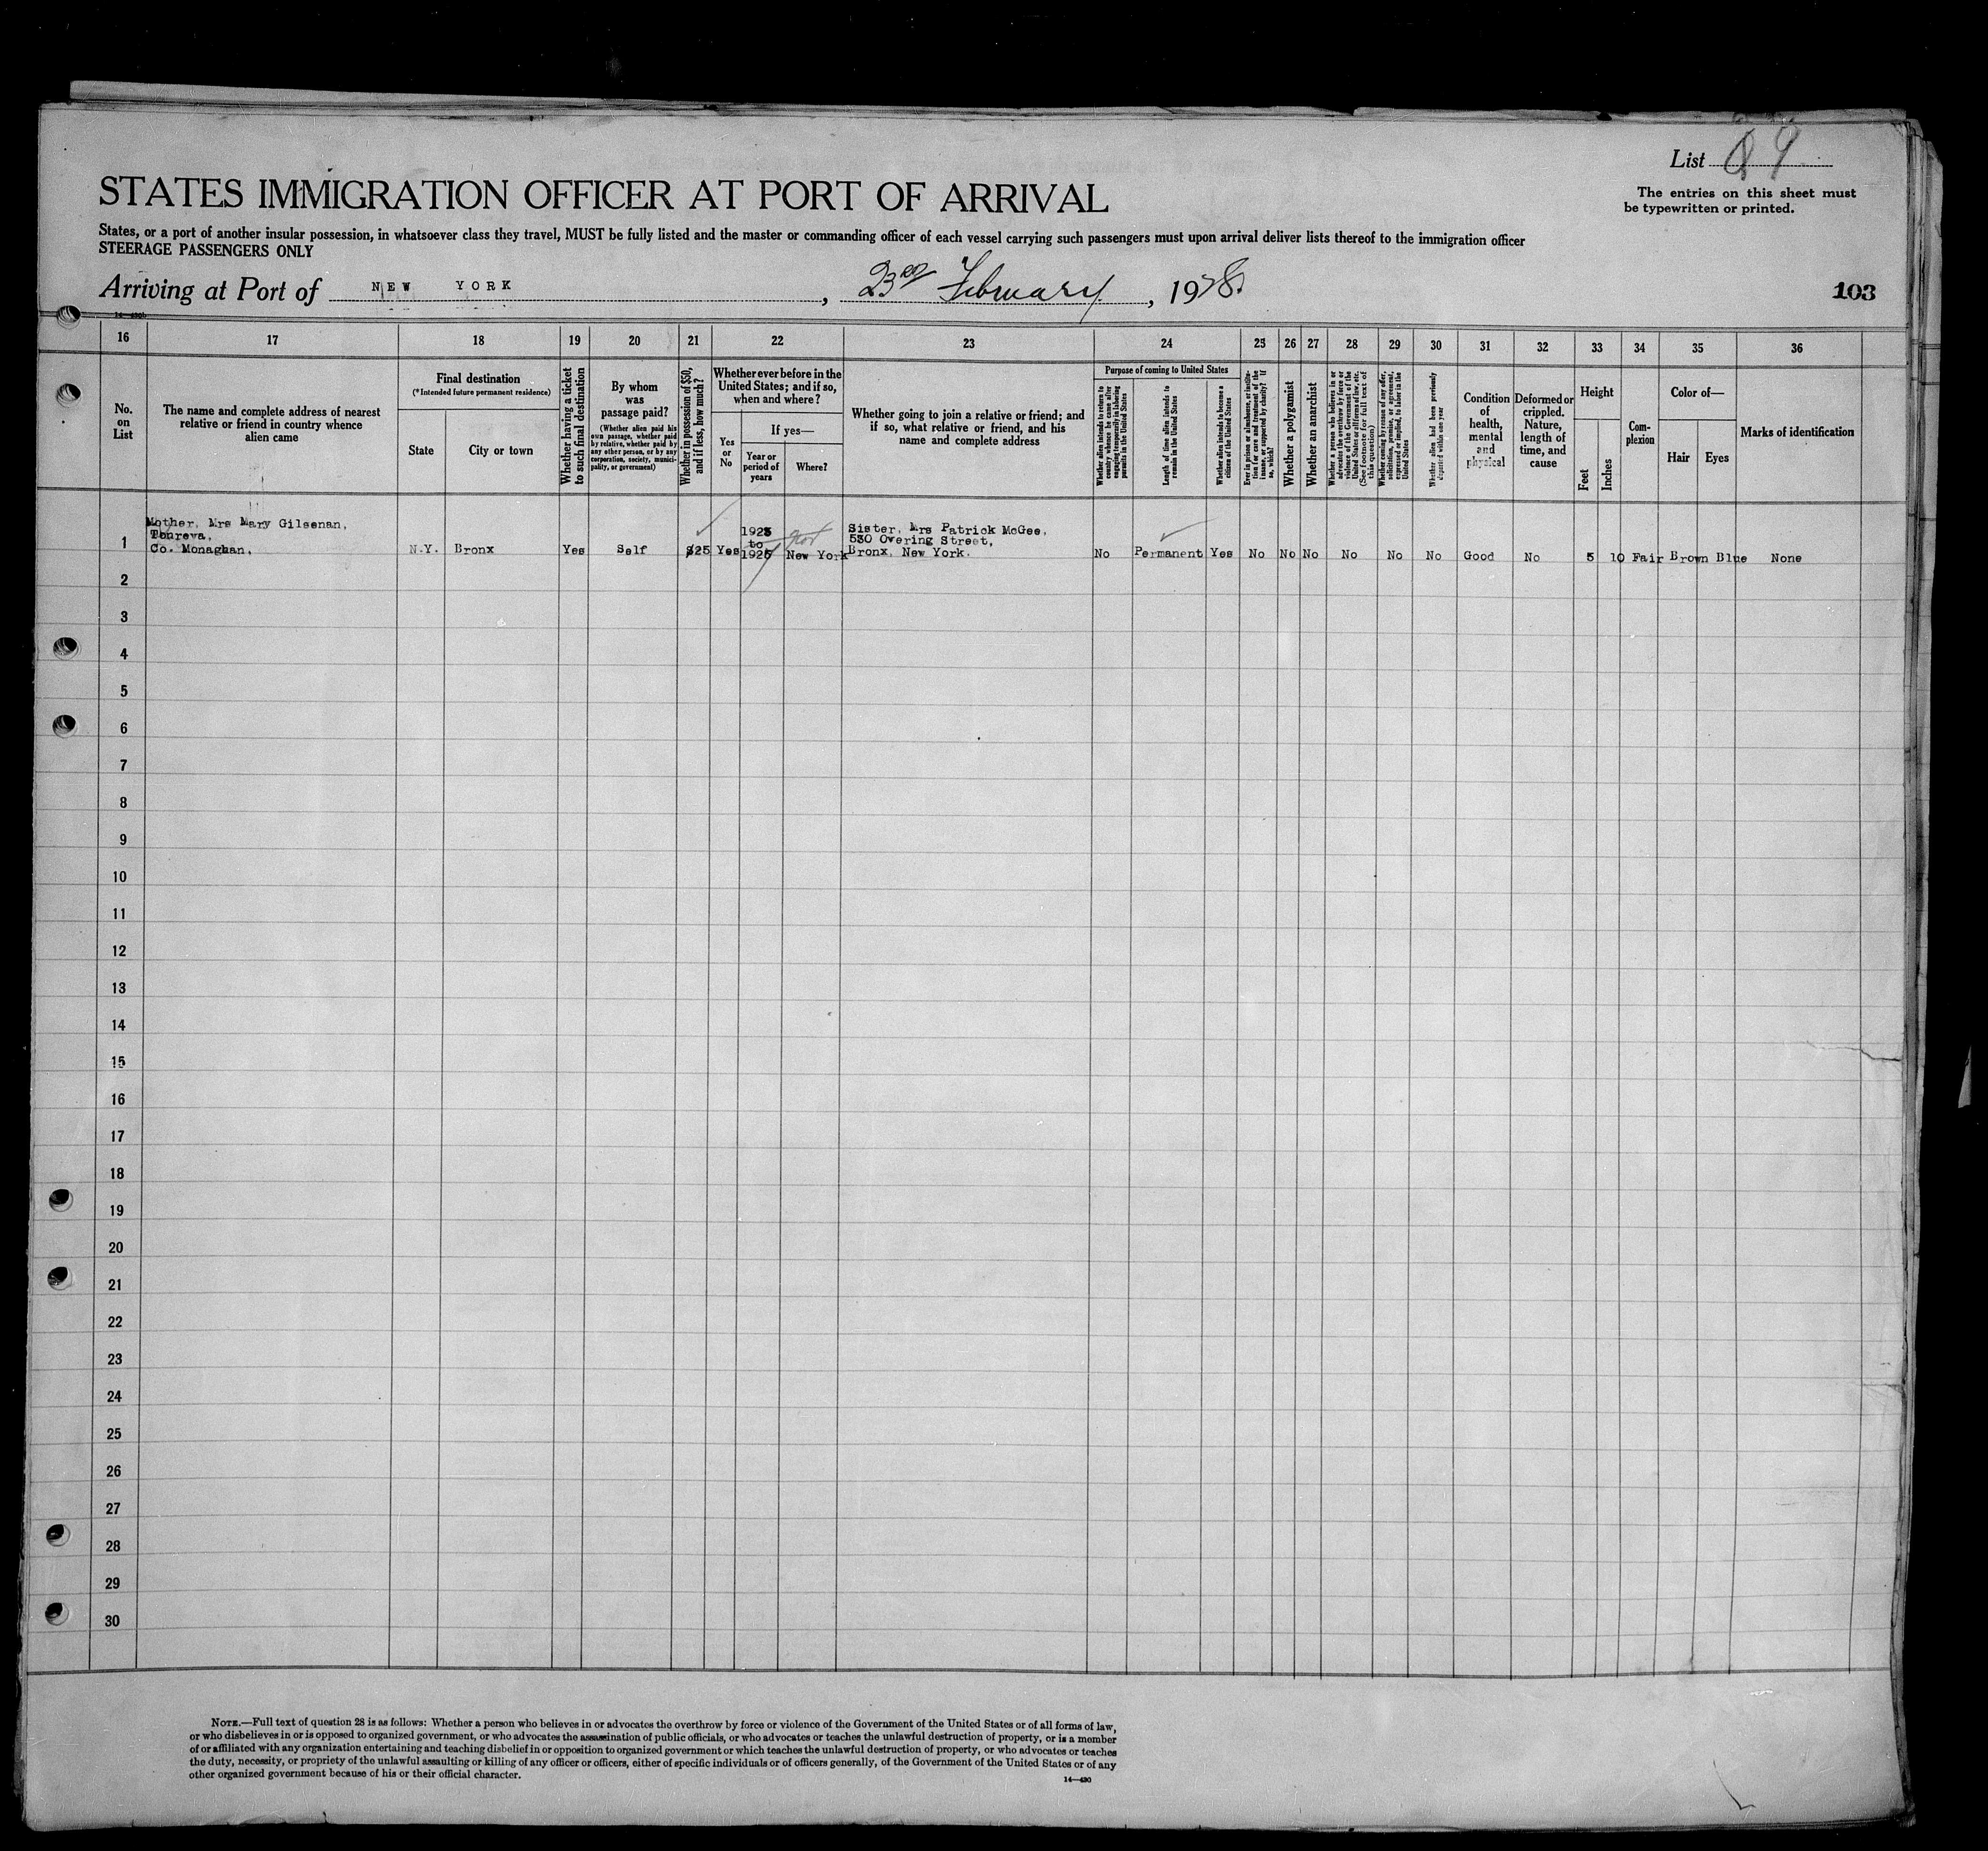 List 9
STATES IMMIGRATION OFFICER AT PORT OF ARRIVAL
The entries on this sheet must
be typewritten or printed.
States, or a port of another insular possession, in whatsoever class they travel, MUST be fully listed and the master or commanding officer of each vessel carrying such passengers must upon arrival deliver lists thereof to the immigration officer
STEERAGE PASSENGERS ONLY
Arriving at Port of NEW YORK, 23rd February, 1928.
103
16 17 18 19 20 21 22 23 24 25 26 27 28 29 30 31 32 33 34 35 36
No.
on
List
The name and complete address of nearest
relative or friend in country whence
alien came
Final destination
(*Intended future permanent residence)
State
City or town
Whether having a ticket
to such final destination
By whom
was
passage paid?
(Whether alien paid his
own passage, whether paid
by relative, whether paid by
any other person, or by any
corporation, society, munici-
pality, or government)
Whether in possession of $50,
and if less, how much?
Whether ever before in the
United States; and if so,
when and where?
Yes
or
No
If yes—
Year or
period of
years
Where?
Whether going to join a relative or friend; and
if so, what relative or friend, and his
name and complete address
Purpose of coming to United States
Whether alien intends to return to
country whence he came after
engaging temporarily in laboring
pursuits in the United States
Length of time alien intends to
remain in the United States
Whether alien intends to become a
citizen of the United States
Ever in prison or almshouse, or institu-
tion for care and treatment of the
insane, or supported by charity? If
so, which?
Whether a polygamist
Whether an anarchist
Whether a person who believes in or
advocates the overthrow by force or
violence of the Government of the
United States or all forms of law, etc.
(See footnote for full text of
this question)
Whether coming by reason of any offer,
solicitation, promise, or agreement,
expressed or implied, to labor in the
United States
Whether alien had been previously
deported within one year
Condition
of
health,
mental
and
physical
Deformed or
crippled.
Nature,
length of
time, and
cause
Height
Feet
Inches
Com-
plexion
Color of—
Hair
Eyes
Marks of identification
Mother, Mrs Mary Gilsenan,
Co. Monaghan,
1 N.Y. Bronx Yes Self $25 Yes
1923
to
1925
New York
Sister, Mrs Patrick McGee,
530 Overing Street,
Bronx, New York.
No Permanent Yes No No No No No No Good No 5 10 Fair Brown Blue None
2
3
4
5
6
7
8
9
10
11
12
13
14
15
16
17
18
19
20
21
22
23
24
25
26
27
28
29
30
NOTE.—Full text of question 28 is as follows: Whether a person who believes in or advocates the overthrow by force or violence of the Government of the United States or of all forms of law,
or who disbelieves in or is opposed to organized government, or who advocates the assassination of public officials, or who advocates or teaches the unlawful destruction of property, or is a member
of or affiliated with any organization entertaining and teaching disbelief in or opposition to organized government or which teaches the unlawful destruction of property, or who advocates or teaches
the duty, necessity, or propriety of the unlawful assaulting or killing of any officer or officers, either of specific individuals or of officers generally, of the Government of the United States or of any
other organized government because of his or their official character.
14—430